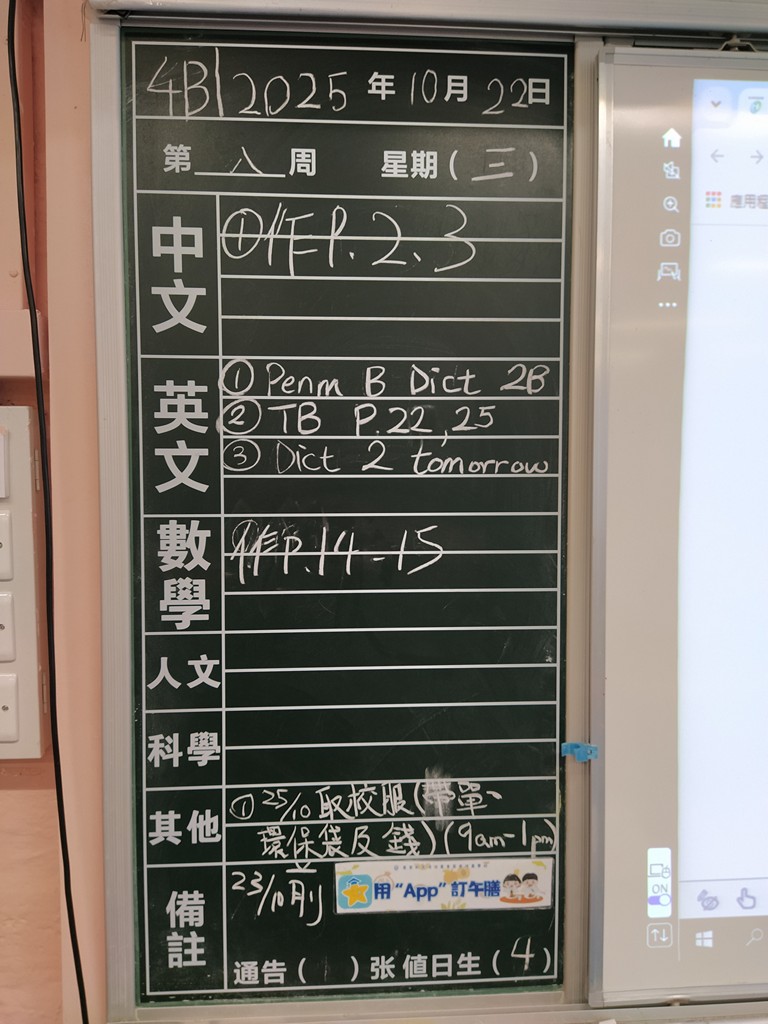 4B 2025年10月22日
第八周 星期(三)
中文
①作P.2、3
英文
① Penm B Dict 2B
② TB P.22,25
③ Dict 2 tomorrow
數學
①作P.14-15
人文
科學
其他
① 25/10 取校服(帶單、
環保袋及錢)(9am-1pm)
備註
23/10
用“App”訂午膳
通告( 1 )张 值日生(4)
應用程
ON